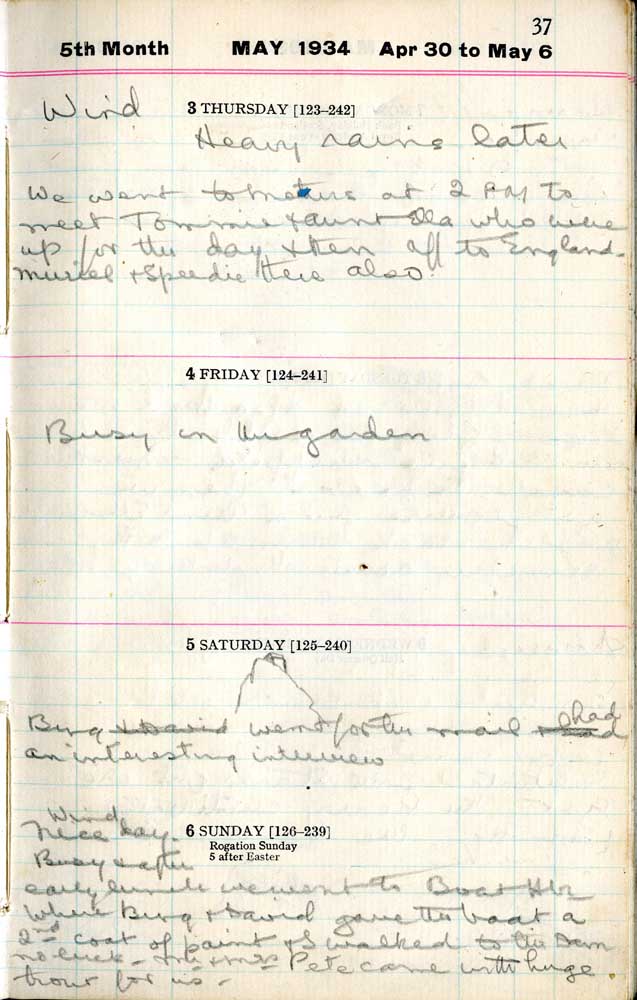 37
5th Month MAY 1934 Apr 30 to May 6
Wind 3 THURSDAY [123–242]
Heavy rains later
We went to at 2 PM to
meet Tommie & Aunt Ella who were
up for the day & then off to England.
Muriel & Speedie there also.
4 FRIDAY [124–241]
Busy in the garden
5 SATURDAY [125–240]
Burg & David went for the mail & had had
an interesting interview
Wind
Nice day. 6 SUNDAY [126–239]
Rogation Sunday
5 after Easter
Busy & after
early lunch we went to Boat Hse
where Burg & David gave the boat a
2nd coat of paint & I walked to the Dam
no luck – Mr & Mrs Pete came with huge
trout for us –